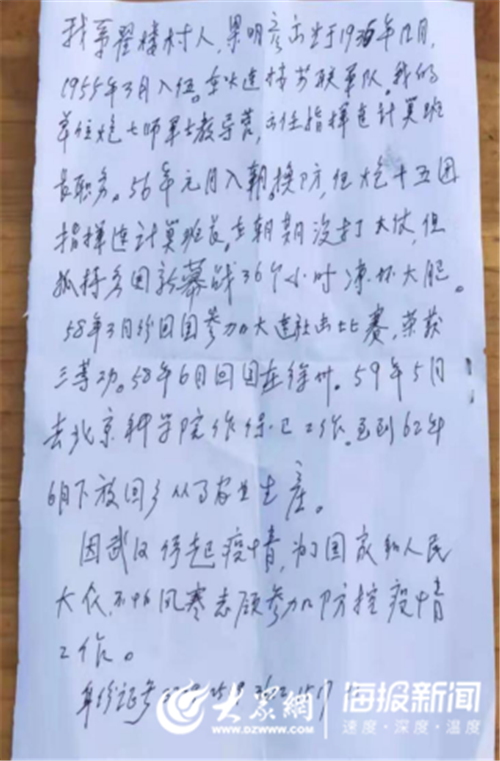 我第翟楼村人,梁明彦出生于1936年12月,
1955年3月入伍。在大连接苏联军队。我的
单位炮七师军士教导营,主任指挥连计算班
长职务。56年元月入朝。换防,任炮十五团
指挥连计算班长。在朝期没打大仗,但
孤 36个小时凍坏大腿。
58年3月份回国参加大连射击比赛,荣获
三等功。58年6月回国在徐州。59年5月
去北京科学院作保卫工作。直到62年
6月下放回乡从事农业生产。
因武汉 起疫情,为了国家和人民
大众,不怕风寒志愿参加防控疫情
工作。
身份证号
大众网 海报新闻
WWW.DZWWW.COM 速度·深度·温度